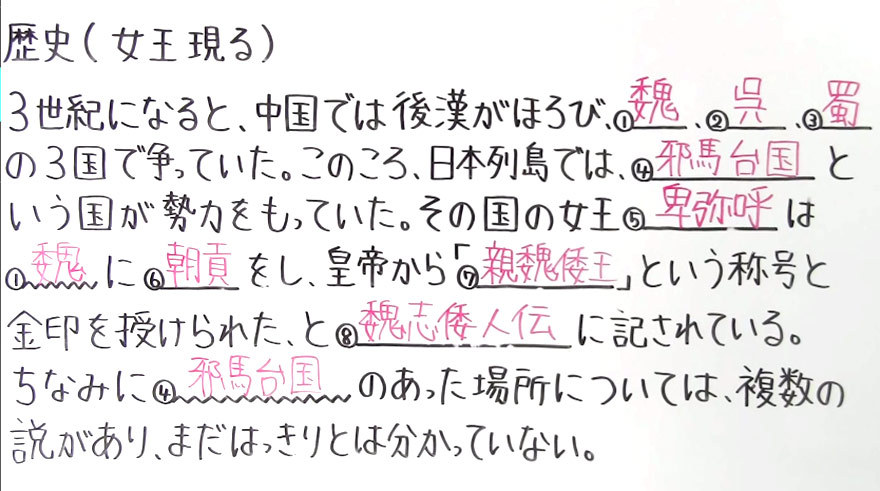 歴史(女王現る)
3世紀になると、中国では後漢がほろび、①魏、②呉、③蜀
の3国で争っていた。このころ、日本列島では、④邪馬台国と
いう国が勢力をもっていた。その国の女王⑤卑弥呼は
①魏に⑥朝貢をし、皇帝から「⑦親魏倭王」という称号と
金印を授けられた、と⑧魏志倭人伝に記されている。
ちなみに④邪馬台国のあった場所については、複数の
説があり、まだはっきりとは分かっていない。